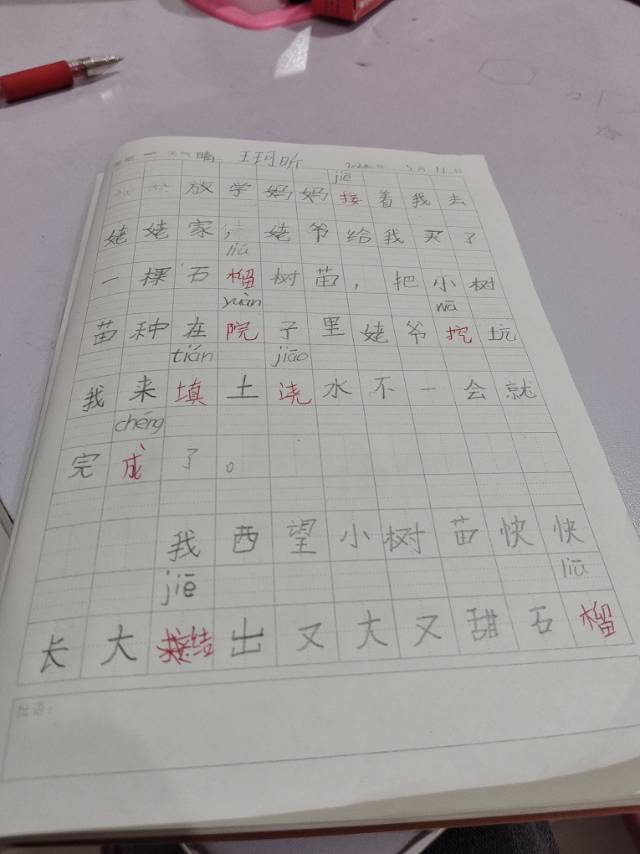 一 天气 晴 王珂昕 5月11日
jiē
放学妈妈接着我去
姥姥家,姥爷给我买了
liú
一棵石榴树苗,把小树
yuàn wā
苗种在院子里姥爷挖坑
tián jiāo
我来填土浇水不一会就
chéng
完成了。
我西望小树苗快快
jiē liū
长大结出又大又甜石榴
批语: